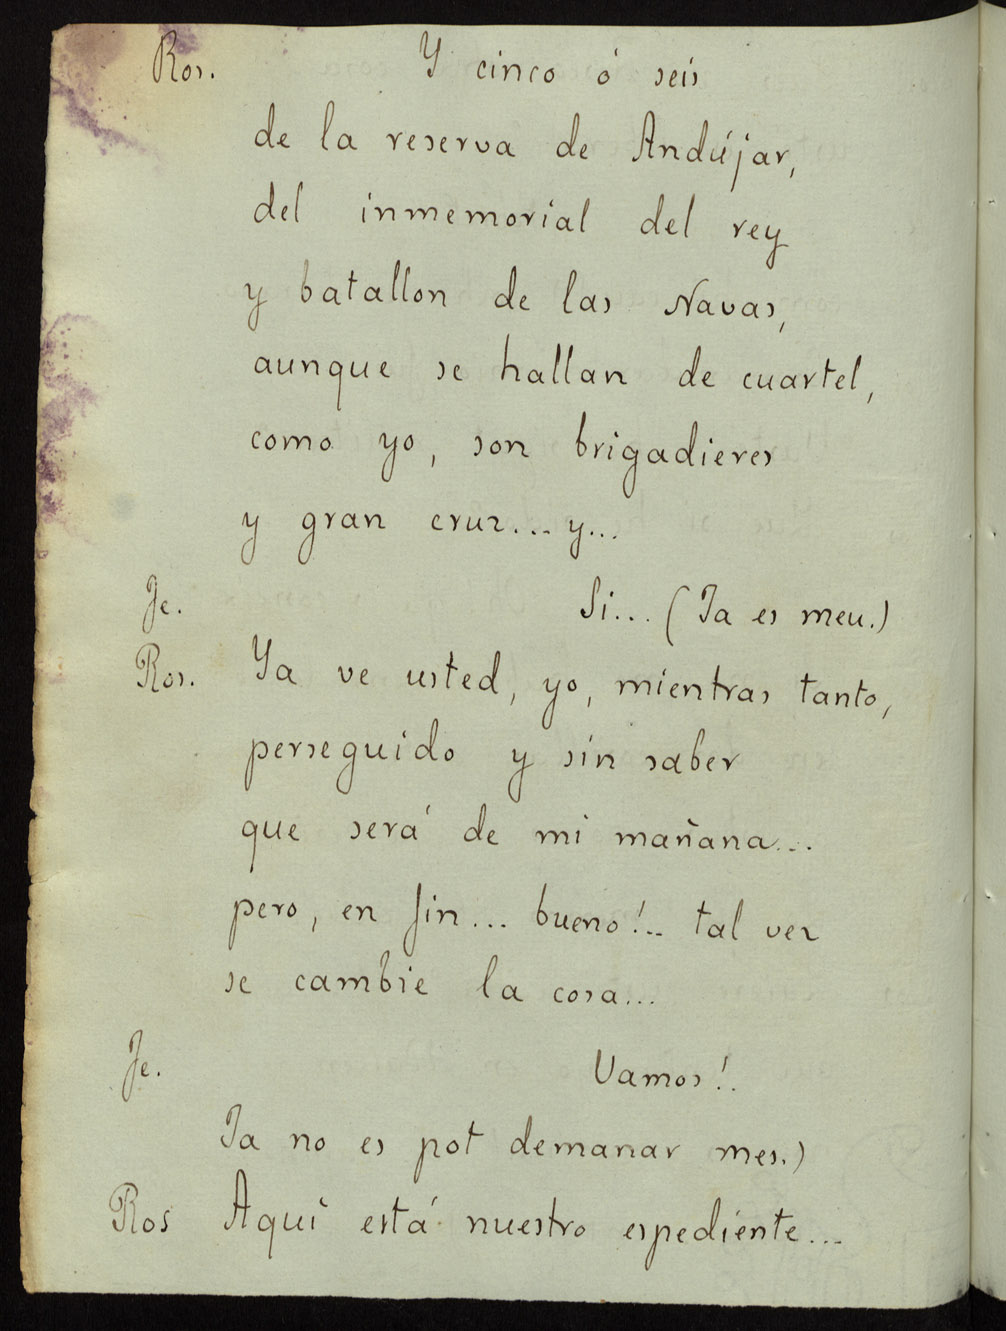 Ros. Y cinco ó seis
de la reserva de Andújar,
del inmemorial del rey
y batallon de las Navas,
aunque se hallan de cuartel,
como yo, son brigadieres
y gran cruz... y...
Je. Si... (Ja es meu.)
Ros. Ya ve usted, yo, mientras tanto,
perseguido y sin saber
que será de mi mañana...
pero, en fin... bueno!.. tal vez
se cambie la cosa...
Je. Vamos!.
Ja no es pot demanar mes.)
Ros Aquí está nuestro espediente...